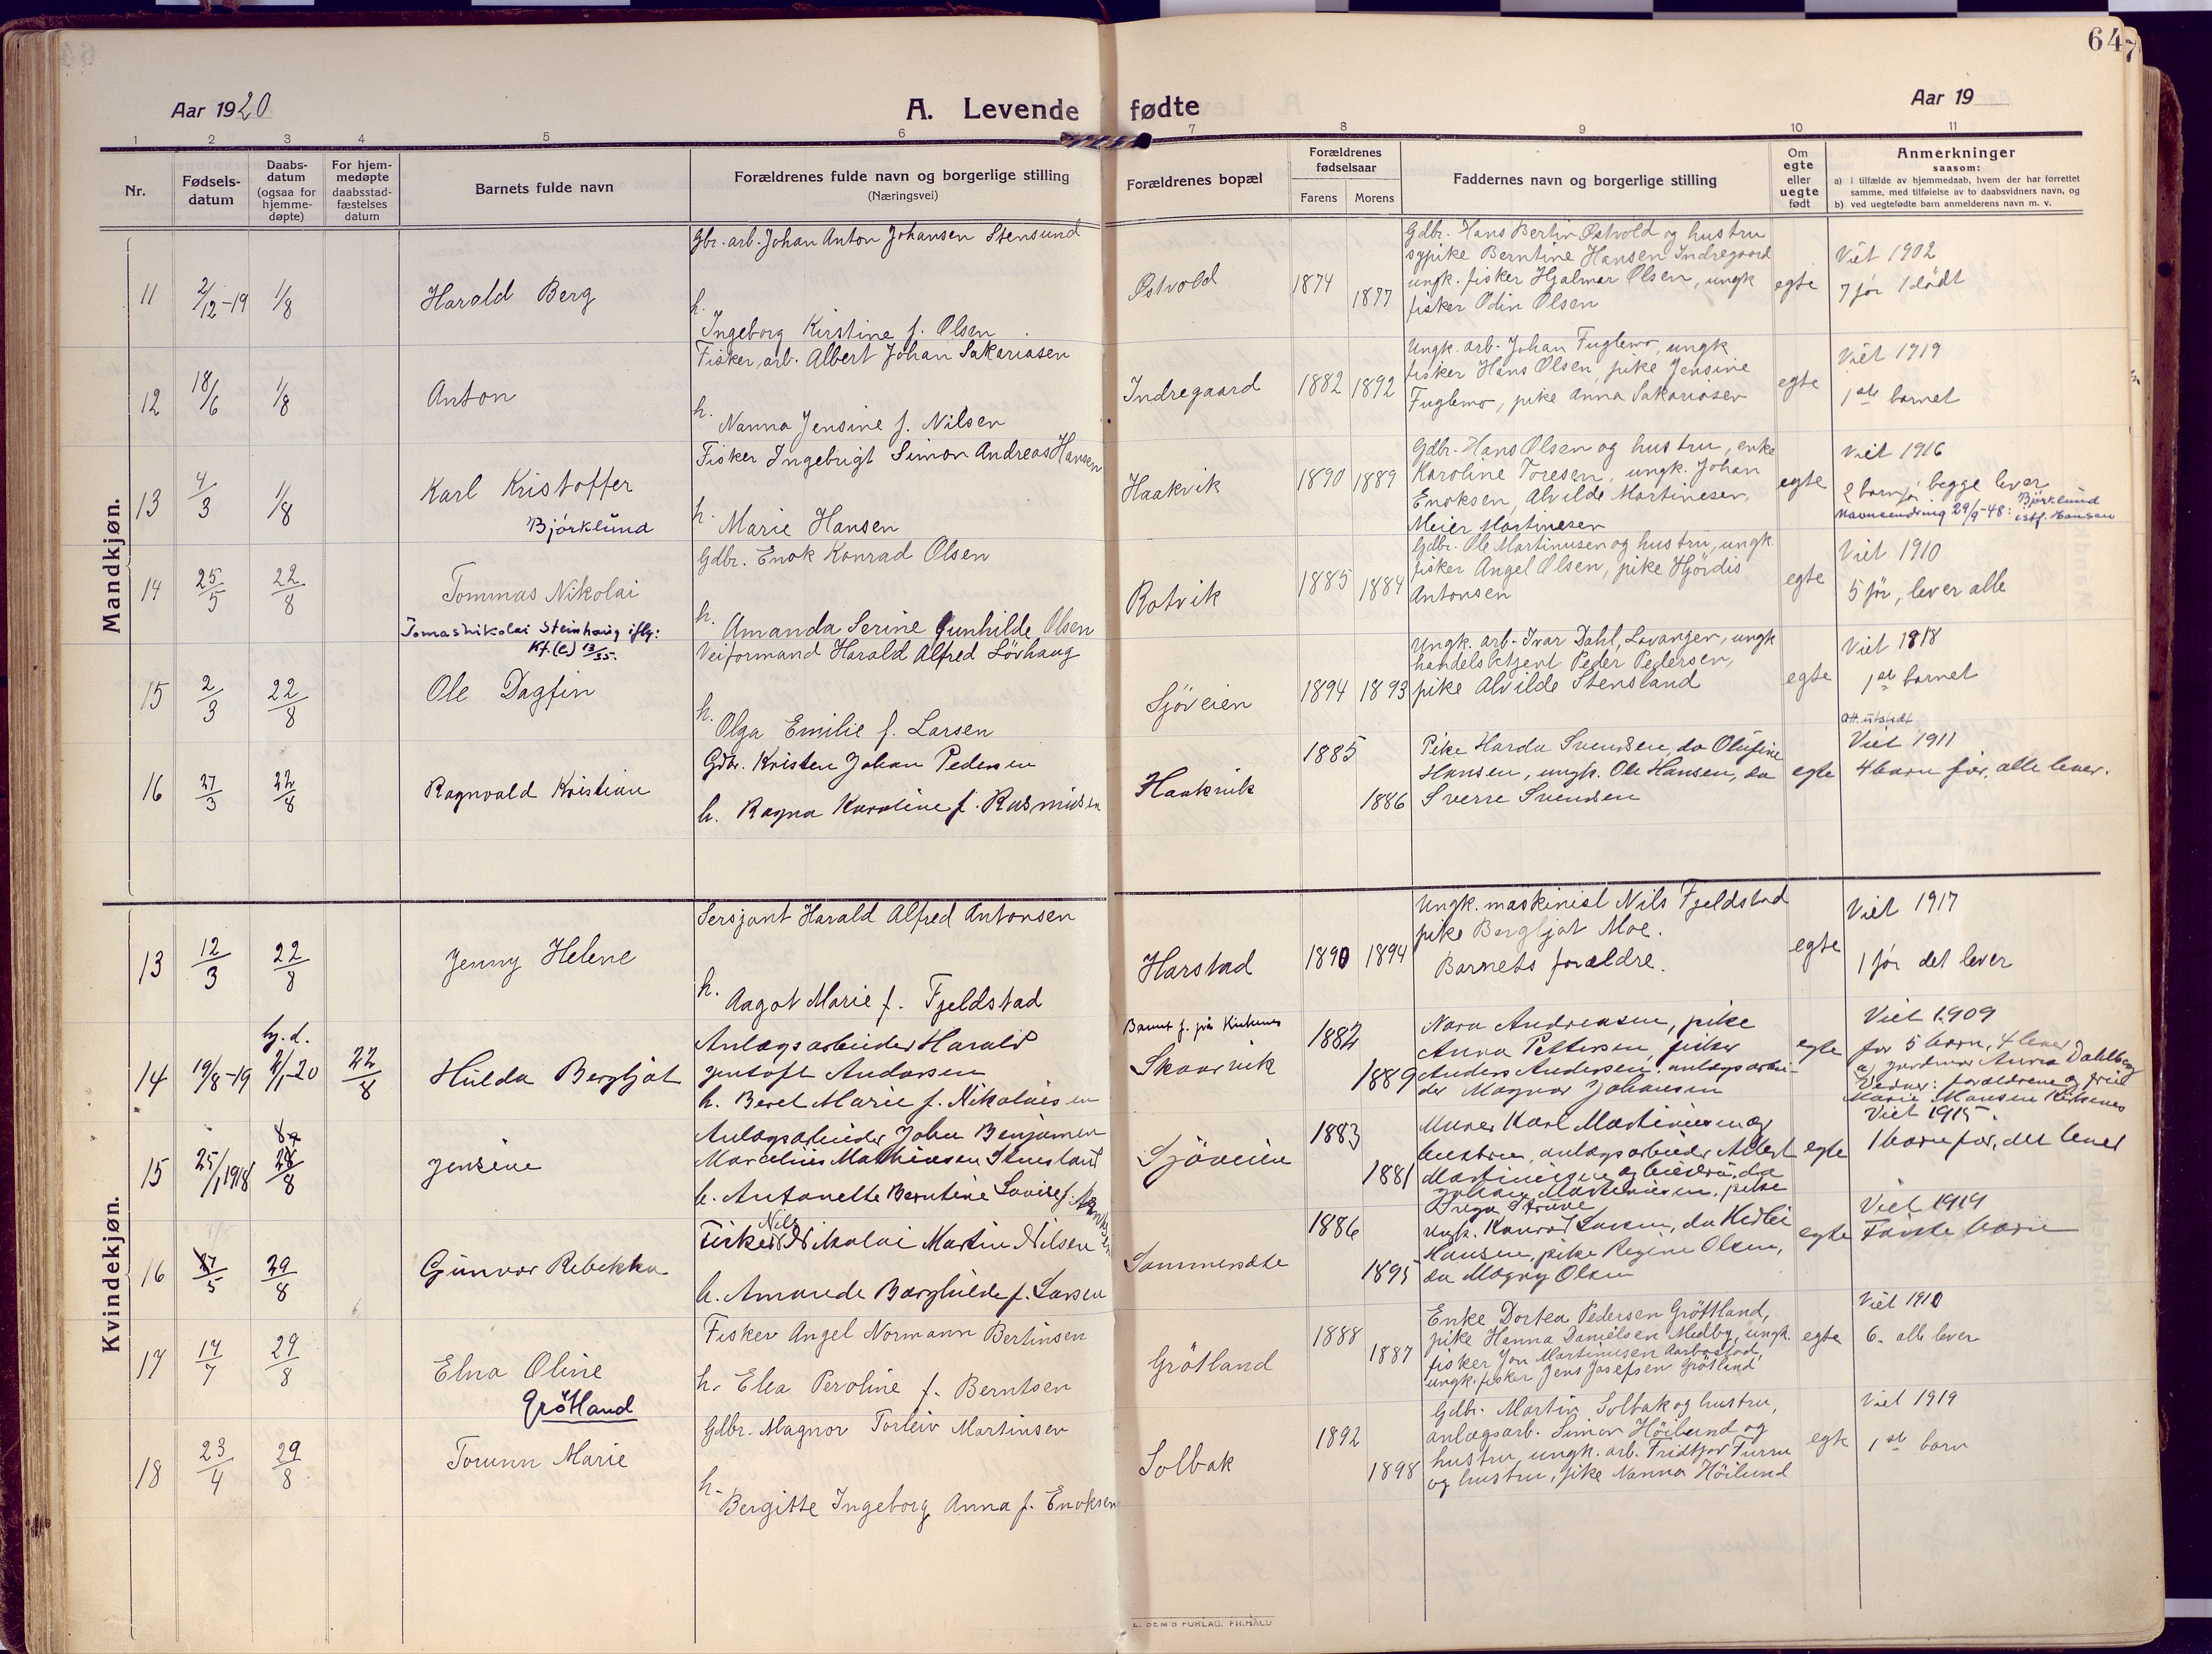 647
Aar 1920
A. Levende fødte
Aar 19
1 2 3 4 5 6 7 8 9 10 11
Nr.
Fødsels-
datum
Daabs-
datum
(ogsaa for
hjemme-
døpte)
For hjem-
medøpte
daabsstad-
fæstelses
datum
Barnets fulde navn
Forældrenes fulde navn og borgerlige stilling
(Næringsvei)
Forældrenes bopæl
Forældrenes
fødselsaar
Farens Morens
Faddernes navn og borgerlige stilling
Om
egte
eller
uegte
født
Anmerkninger
saasom:
a) i tilfælde av hjemmedaab, hvem der har forrettet
samme, med tilføielse av to daabsvidners navn, og
b) ved uegtefødte barn anmelderens navn m. v.
Mandkjøn.
11 2/12-19 1/8
Harald Berg
Gbr. arb. Johan Anton Johansen Stensund
h.
Ingeborg Kirstine f. Olsen
Østvold
1874 1877
Gdbr. Hans Bertin Østvold og hustru
sypike Berntine Hansen Indregaard
ungk. fisker Hjalmar Olsen, ungk
fisker Odin Olsen
egte
Viet 1902
7 før 1 dødt
12 18/6 1/8
Anton
Fisker, arb. Albert Johan Sakariasen
h.
Nanna Jensine f. Nilsen
Indregaard
1882 1892
Ungk. arb. Johan Fuglemo, ungk
fisker Hans Olsen, pike Jensine
Fuglemo, pike Anna Sakariasen
egte
Viet 1919
1ste barnet
13 4/3 1/8
Karl Kristoffer
Bjørklund
Fisker Ingebrigt Simon Andreas Hansen
h.
Marie Hansen
Haakvik
1890 1889
Gdbr. Hans Olsen og hustru, enke
Karoline Toresen, ungk. Johan
Enoksen, Alvilde Martinesen,
Meier Martinesen
egte
Viet 1916
2 barn før begge lever
Navneendring 29/9-48: Bjørklund
istf. Hansen
14 25/5 22/8
Tommas Nikolai
Tomasnikolai Steinhaug iflg:
Kf.(c) 13/35.
Gdbr. Enok Konrad Olsen
h.
Amanda Serine Gunhilde Olsen
Rotvik
1885 1884
Gdbr. Ole Martinusen og hustru, ungk.
fisker Angel Olsen, pike Hjørdis
Antonsen
egte
Viet 1910
5 før, lever alle
15 2/3 22/8
Ole Dagfin
Veiformand Harald Alfred Løvhaug
h.
Olga Emilie f. Larsen
Sjøveien
1894 1893
Ungk. arb. Ivar Dahl, Lavangen, ungk
handelsbetjent Peder Pedersen,
pike Alvilde Stensland
egte
Viet 1918
1st barnet
16 27/3 22/8
Ragnvald Kristian
Gdbr. Kristen Johan Pedersen
h. Ragna Karoline f. Rasmussen
Haakvik
1885 1886
Pike Harda Svendsen, do Olufine
Hansen, ungk. Ole Hansen, do
Sverre Svendsen
egte
Att. utstedt
Viet 1911
4 barn før, alle lever.
Kvindekjøn.
13 12/3 22/8
Jenny Helene
Sersjant Harald Alfred Antonsen
h.
Aagot Marie f. Fjeldstad
Harstad
1890 1894
Ungk. maskinist Nils Fjeldstad
pike Bergljot Moe.
Barnets forældre.
egte
Viet 1917
1 før det lever
14 19/8-19 hj.d. 2/1-20 22/8
Hulda Bergljot
Anlægsarbeider Harald
Jentoft Andersen
h. Beret Marie f. Nikolaisen
Barnet f. paa Kirkenes
Skaarvik
1882 1889
Nora Andreasen, pike
Anna Pettersen, fisker
Anders Andersen, anlægsarbei-
der Magnar Johansen
egte
Viet 1909
før 5 barn, 4 lever
a) jordmor Anna Dahlberg
Vidner: forældrene og frue
Marie Hansen Kirkenes
15 25/1 1918 28/8
Jensine
Anlægsarbeider Johan Benjamin
Marcelius Mathiassen Stensland
h. Antonette Berntine Lovise f.
Sjøveien
1883 1881
Murer Karl Martinusen og
hustru, anlægsarbeider Albert
Martinusen og hustru, do
Johan Martinusen, pike
egte
Viet 1915.
1 barn før, det lever
16 27/5 29/8
Gunvor Rebekka
Fisker Nils Nikolai Martin Nilsen
h. Amanda Borghilde f. Larsen
Sommersæte
1886 1895
Ungk. Konrad Larsen, do Hedlei
Hansen, pike Regine Olsen,
do Magny Olsen
egte
Viet 1919
Første barn
17 17/7 29/8
Elna Oline
Grötland
Fisker Angel Normann Bertinsen
h. Elea Peroline f. Berntsen
Grøtland
1888 1887
Enke Dortea Pedersen Grøttland,
pike Hanna Danielsen Medby, ungk.
fisker Jon Martinusen Aarbostad,
ungk. fisker Jens Josefsen Grøtland
egte
Viet 1910
6. alle lever
18 23/4 29/8
Torunn Marie
Gdbr. Magnor Torleiv Martinsen
h.
Bergitte Ingeborg Anna f. Enoksen
Solbak
1892 1898
Gdbr. Martin Solbak og hustru,
anlægsarb. Simon Høilund og
hustru, ungk. arb. Fridtjov Furu
og hustru, pike Nanna Høilund
egte
Viet 1919
1st barn
E. SEM'S FORLAG. FR.HALD